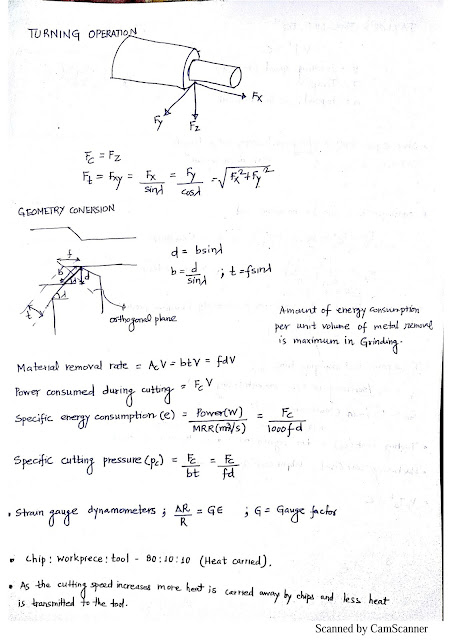 TURNING OPERATION
Fx
Fy
Fz
Fc = Fz
Ft = Fxy = Fx/sinλ = Fy/cosλ = √(Fx²+Fy²)
GEOMETRY CONERSION
f
b
d
λ
λ
t
orthogonal plane
d = bsinλ
b = d/sinλ ; t = fsinλ
Amount of energy consumption
per unit volume of metal removal
is maximum in Grinding.
Material removal rate = AcV = btV = fdV
Power consumed during cutting = FcV
Specific energy consumption (e) = Power(W)/MRR(m³/s) = Fc/1000fd
Specific cutting pressure (pc) = Fc/bt = Fc/fd
• Strain gauge dynamometers ; ΔR/R = Gε ; G = Gauge factor
• Chip : Workpiece : tool - 80:10:10 (Heat carried).
• As the cutting speed increases more heat is carried away by chips and less heat
is transmitted to the tool.
Scanned by CamScanner